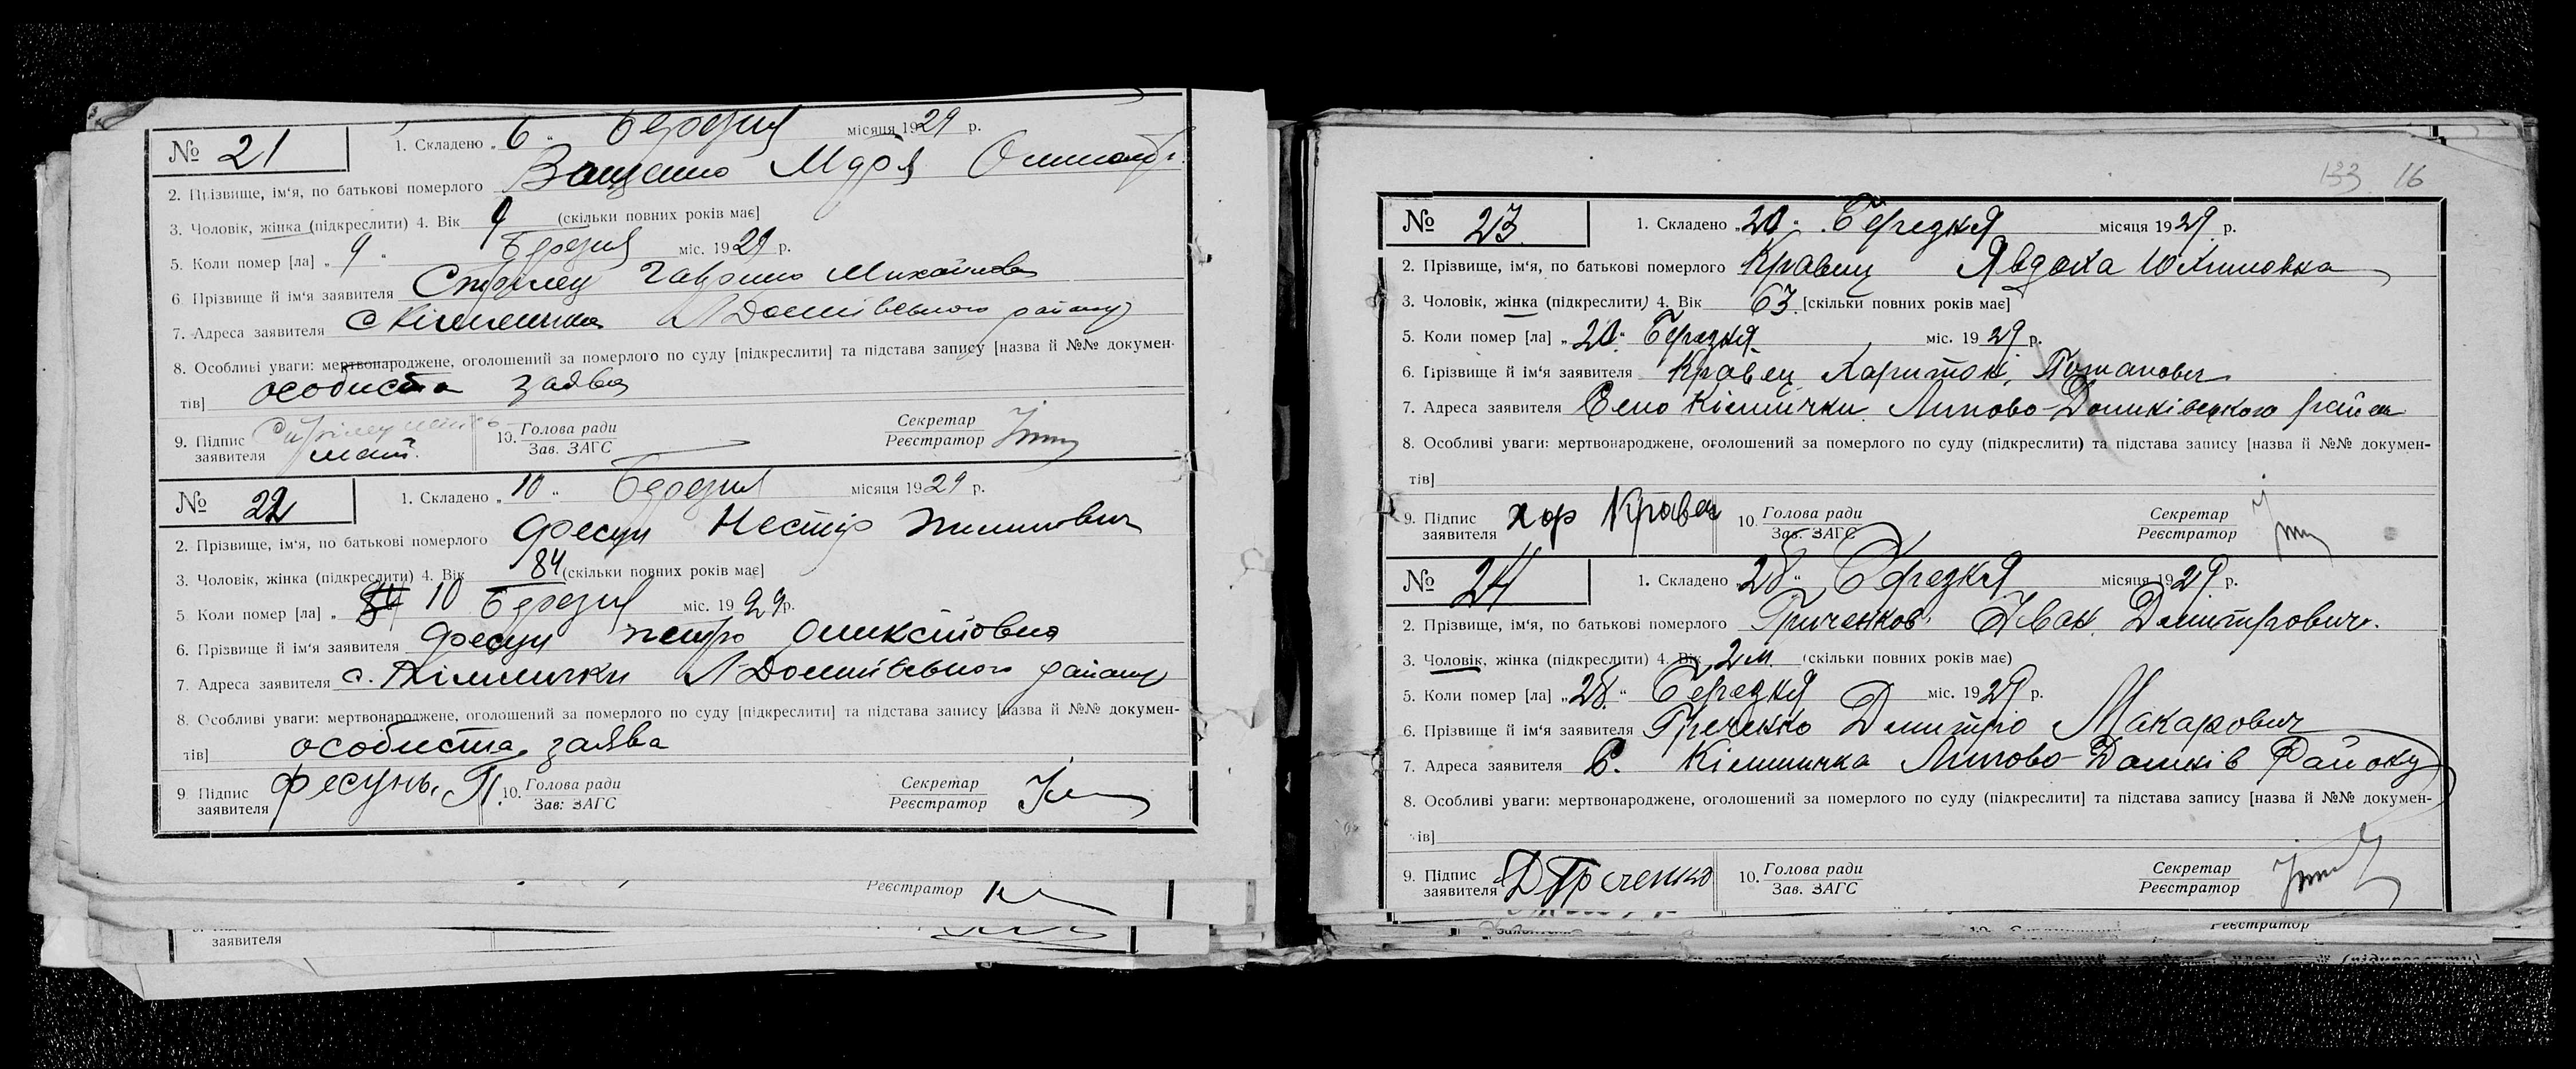 № 21 1. Складено „ 6 “ Березня місяця 1929 р.
2. Прізвище, ім‘я, по батькові померлого Ващенко
3. Чоловік, жінка (підкреслити) 4. Вік 9 (скільки повних років має]
5. Коли помер [ла] „ 9 “ Березня міс. 1929 р.
6. Прізвище й ім‘я заявителя Стрілец Михайлова
7. Адреса заявителя с Кішинчка району
8. Особливі уваги: мертвонароджене, оголошений за померлого по суду [підкреслити] та підстава запису [назва й №№ докумен-
тів] особиста заява
9. Підпис заявителя 10. Голова ради Зав. ЗАГС Секретар Реєстратор
№ 22 1. Складено „ 10 “ Березня місяця 1929 р.
2. Прізвище, ім‘я, по батькові померлого Фесун Нестір
3. Чоловік, жінка (підкреслити) 4. Вік 84 (скільки повних років має]
5 Коли помер [ла] „ 10 Березня міс. 1929 р.
6. Прізвище й ім‘я заявителя Фесун Петро
7. Адреса заявителя с. Кішинчки району
8. Особливі уваги: мертвонароджене, оголошений за померлого по суду [підкреслити] та підстава запису [назва й №№ докумен-
тів] особиста заява
9 Підпис заявителя Фесунь П. 10. Голова ради Зав: ЗАГС Секретар Реєстратор
Реєстратор
заявителя
133 16
№ 23 1. Складено „20“ Березня місяця 1929 р.
2. Прізвище, ім‘я, по батькові померлого Кравец Явдоха Юхимовна
3. Чоловік, жінка (підкреслити) 4. Вік 63 [скільки повних років має]
5. Коли помер [ла] „20“ Березня міс. 1929 р.
6. Прізвище й ім‘я заявителя Кравец Харитон
7. Адреса заявителя Село Кішинчки Липово-Долинківецкого район
8. Особливі уваги: мертвонароджене, оголошений за померлого по суду (підкреслити) та підстава запису [назва й №№ докумен-
тів]
9. Підпис заявителя Хар Кравец 10. Голова ради Зав. ЗАГС Секретар Реєстратор
№ 24 1. Складено „28“ Березня місяця 1929 р.
2. Прізвище, ім‘я, по батькові померлого Гриченков Іван Дмитрович.
3. Чоловік, жінка (підкреслити) 4. Вік 2 м. (скільки повних років має)
5. Коли помер [ла] „28“ Березня міс. 1929 р.
6. Прізвище й ім‘я заявителя Греченко Дмитро Макарович
7. Адреса заявителя С. Кішинчка Липово- Району
8. Особливі уваги: мертвонароджене, оголошений за померлого по суду (підкреслити] та підстава запису [назва й №№ докумен-
тів]
9. Підпис заявителя Д Греченко 10. Голова ради Зав. ЗАГС Секретар Реєстратор
Реєстратор